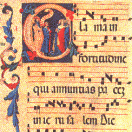 lama in
fortitudine
qui annuntias pacez
in ierusalem Dic